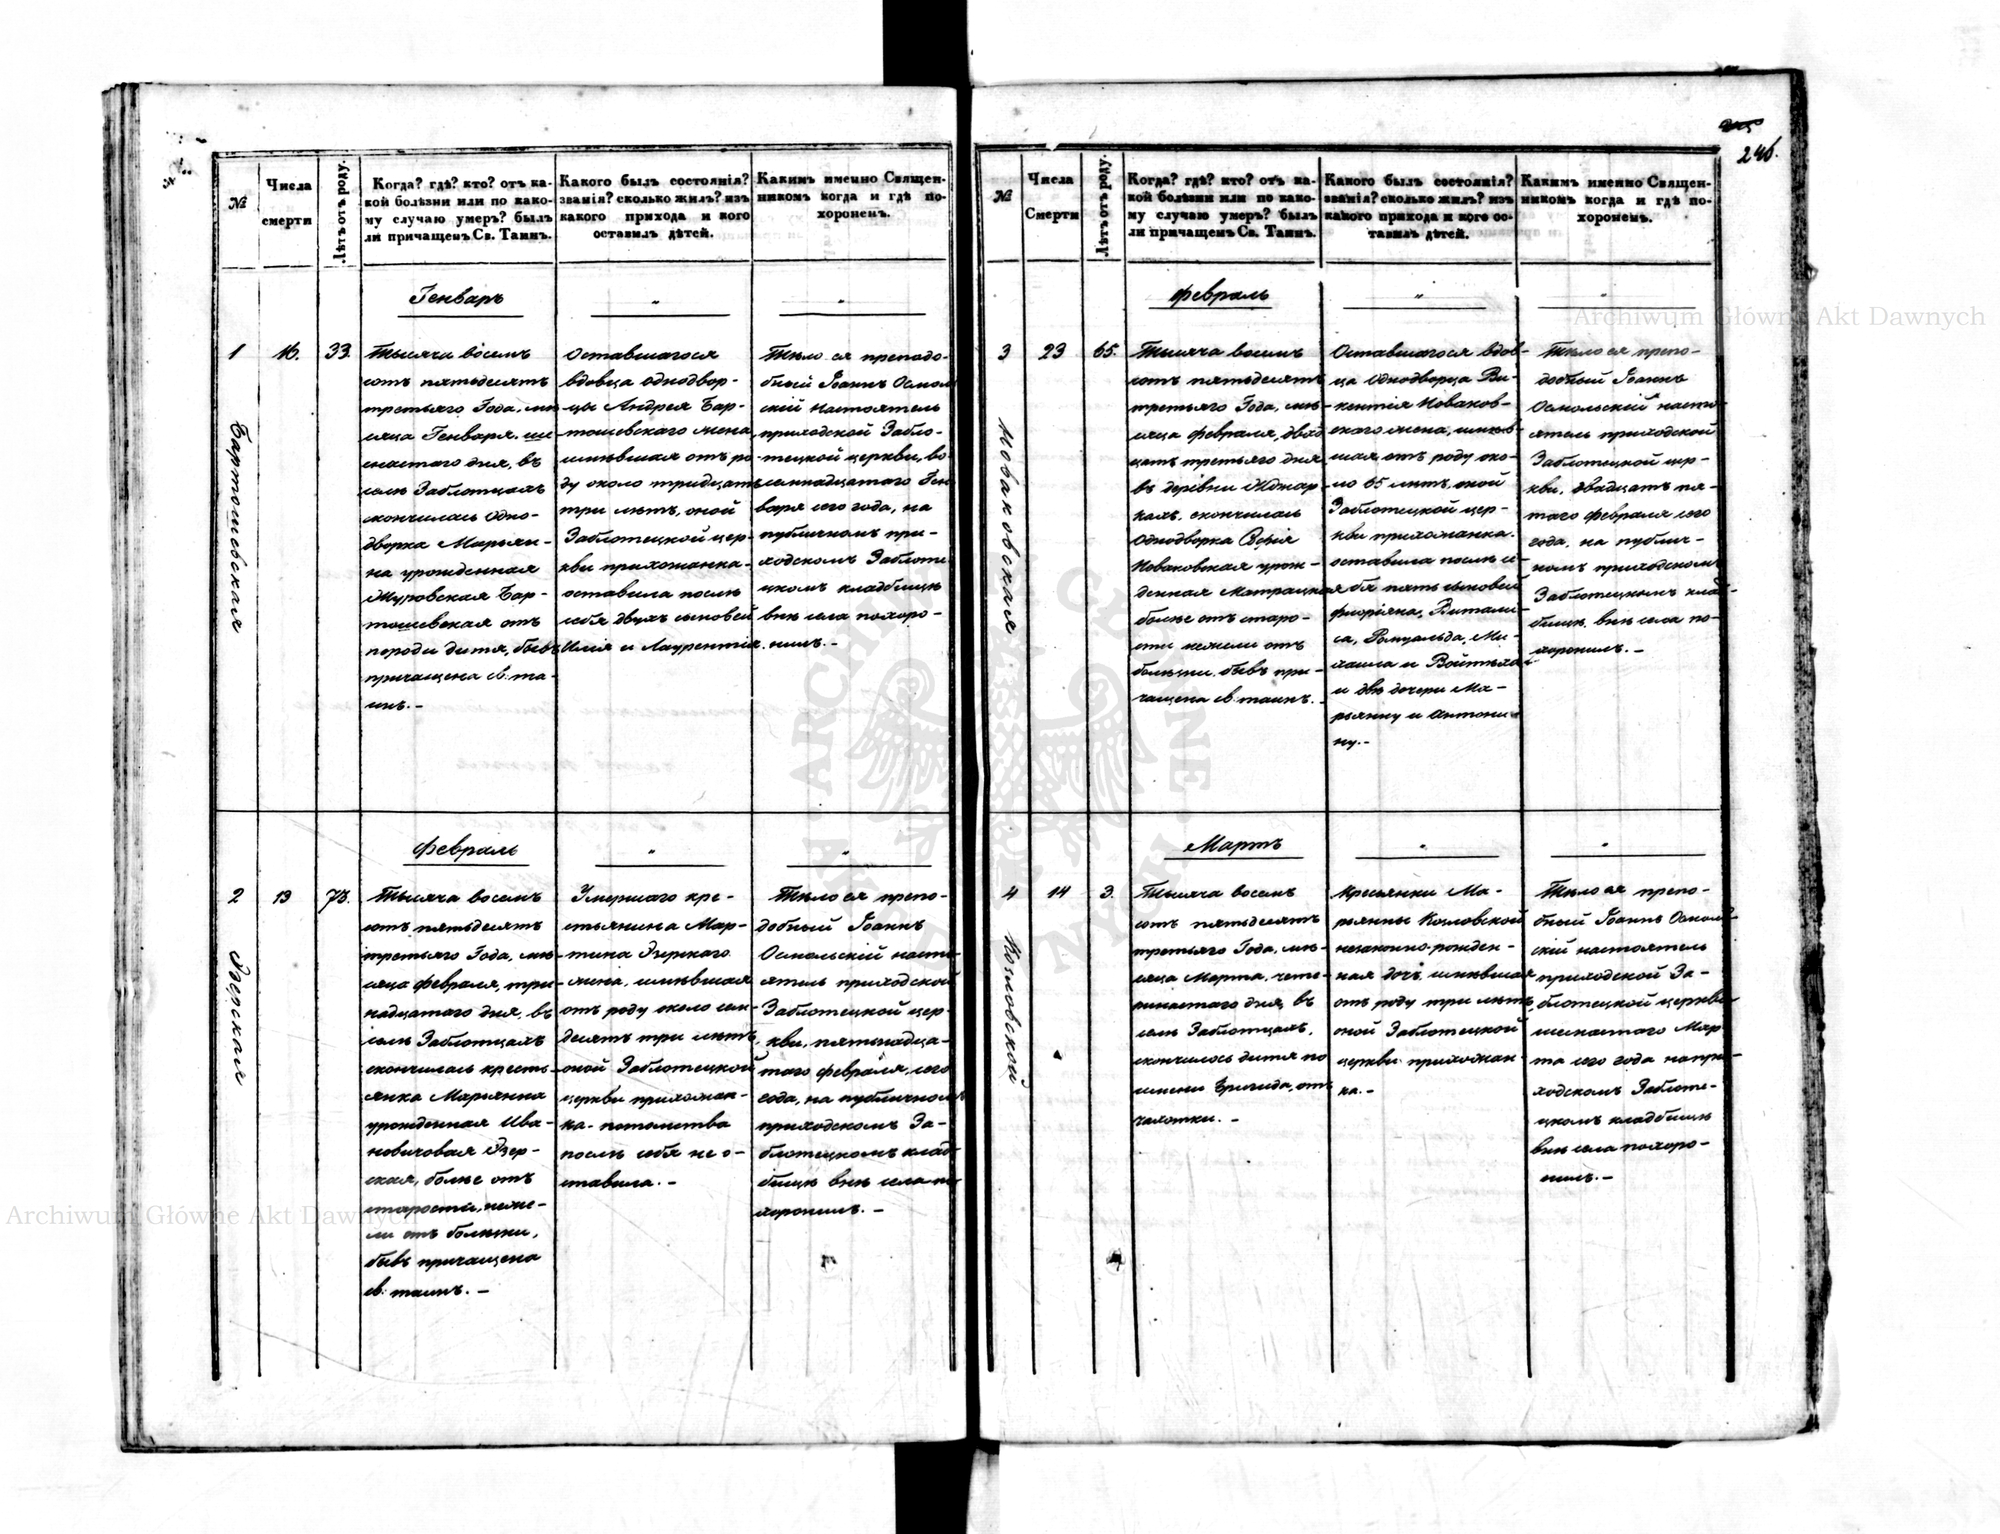 246.
№
Числа
смерти
Лѣтъ отъ роду.
Когда? гдѣ? кто? отъ ка-
кой болѣзни или по како-
му случаю умеръ? былъ
ли причащенъ Св. Таинъ.
Какого былъ состоянія?
званія? сколько жилъ? изъ
какого прихода и кого
оставилъ дѣтей.
Какимъ именно Священ-
никомъ когда и гдѣ по-
хороненъ.
Генварь
"
"
1
16.
33.
Бартошевская
Тысяча восемъ
сотъ пятьдесятъ
третьяго Года, мѣ
сяца Генваря, ше
снастаго дня, въ
селѣ Заблотцахъ
скончилась одно-
дворка Марьян-
на урожденная
Журовская Бар-
тошевская отъ
породи дитя, бывъ
причащена св: та-
инъ. -
Оставшагося
вдовца однодвор-
цы Андрея Бар-
тошевскаго жена
имѣвшая отъ ро
ду около тридцать
три лѣтъ, оной
Заблотецкой цер-
кви прихожанка-
оставила послѣ
себя двухъ сыновей
Илія и Лаурентія.
Тѣло ея преподо-
бный Іоаннъ Осмол
скій настоятель
приходской Забло-
тецкой церкви, во-
семнадцатаго Ген
варя сего года, на
публичномъ при-
ходскомъ Заблоте
цкомъ кладбищѣ
внѣ села похоро-
нилъ. -
февраль
"
"
2
13
73.
Зерская
Тысяча восемъ
сотъ пятьдесятъ
третьяго Года, мѣ
сяца февраля, три-
надцатаго дня, въ
селѣ Заблотцахъ
скончилась кресть-
янка Марьянна
урожденная Ива-
новичовая Зер-
ская, более отъ
старости, неже-
ли отъ болѣзни,
бывъ причащена
св: таинъ. -
Умершаго кре-
стьянина Мар-
тина Зерскаго
жена, имѣвшая
отъ роду около сем-
десятъ три лѣтъ,
оной Заблотецкой
церкви прихожан-
ка- потомства
послѣ себя не о-
ставила. -
Тѣло ея препо-
добный Іоаннъ
Осмольскій насто
ятель приходской
Заблотецкой цер-
кви, пятьнадца-
таго февраля, сего
года, на публичномъ
приходскомъ За-
блотецкомъ клад
бищѣ внѣ села по
хоронилъ. -
№
Числа
Смерти
Лѣтъ отъ роду.
Когда? гдѣ? кто? отъ ка-
кой болѣзни или по како-
му случаю умеръ? былъ
ли причащенъ Св. Таинъ.
Какого былъ состоянія?
званія? сколько жилъ? изъ
какого прихода и кого ос-
тавилъ дѣтей.
Какимъ именно Священ-
никомъ когда и гдѣ по-
хороненъ.
февраль
"
"
3
23
65.
Новаковская
Тысяча восемъ
сотъ пятьдесятъ
третьяго Года, мѣ-
сяца февраля, двад
цать третьяго дня
въ деревни Жджар
кахъ, скончилась
однодворка Софія
Новаковская урож-
денная Матрацкая
больѣе отъ старо-
сти нежели отъ
болѣзни бывъ при-
чащена св: таинъ. -
Оставшагося вдов-
ца однодворца Ви-
кентія Новаков-
скаго жена, имѣв-
шая отъ роду око-
ло 65 лѣтъ, оной
Заблотецкой цер-
кви прихожанка.
оставила послѣ се-
бя пять сыновей
флоріяна, Витали-
са, Ромуальда, Ми-
хаила и Войтѣха
и двѣ дочери Ма-
рьянну и Антони-
ну. -
Тѣло ея препо-
добный Іоаннъ
Осмольскій насто
ятель приходской
Заблотецкой цер-
кви, двадцать пя-
таго февраля сего
года, на публич-
номъ приходскомъ
Заблотецкимъ клад
бищѣ внѣ села по-
хоронилъ. -
Мартъ
"
"
4
14
3.
Козловской
Тысяча восемъ
сотъ пятьдесятъ
третьяго Года, мѣ-
сяца Марта, чете-
рнастаго дня, въ
селѣ Заблотцахъ,
скончилось дитя по
имени Бригида, отъ
чахотки. -
Кресьянки Ма-
рьянны Козловской
незаконно-рожден-
ная дочь, имѣвшая
отъ роду три лѣтъ,
оной Заблотецкой
церкви прихожан-
ка. -
Тѣло ея препо-
бный Іоаннъ Осмол
скій настоятель
приходской За-
блотецкой церкви
шеснастаго Мар
та сего года на при-
ходскомъ Заблоте-
цкомъ кладбищѣ
внѣ села похоро-
нилъ. -
Archiwum Główne Akt Dawnych
Archiwum Główne Akt Dawnych